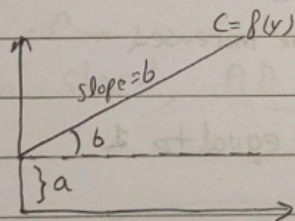 C=f(y)
slope=b
b
}a